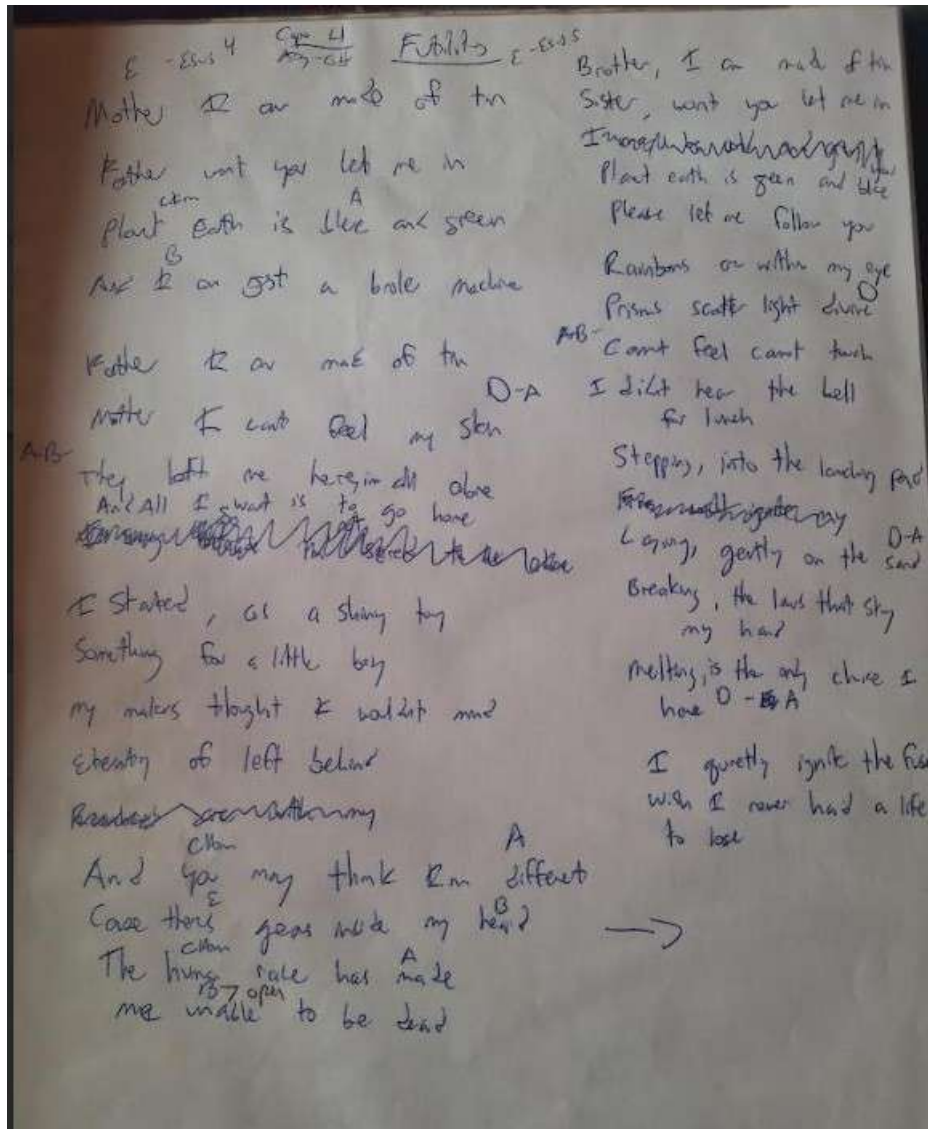 E - Esus 4 Capo 4 Futility E - Esus5
Mother I am made of tin
Father wont you let me in
C#m A
Planet Earth is blue and green
B
And I am just a broke machine
Father I am made of tin
D-A
Mother I cant feel my skin
A-B-
They left me here all alone
And All I want is to go home
I started, as a shiny toy
Something for a little boy
my makers thought I wouldnt mind
Eternity of left behind
C#m A
And you may think Im different
E B
Cause theres gears inside my head
C#m A
The human race has made
B7 open
me unable to be dead
Brother, I am made of tin
Sister, wont you let me in
Planet earth is green and blue
Please let me follow you
Rainbows are within my eye
D
Prisms scatter light divine
A-B-
Cannt feel cannt touch
I didnt hear the bell
for lunch
Stepping, into the landing pad
D-A
Laying, gently on the sand
Breaking, the laws that stay
my hand
Melting, is the only choice I
have D - A
I quietly ignite the fuse
wish I never had a life
to lose